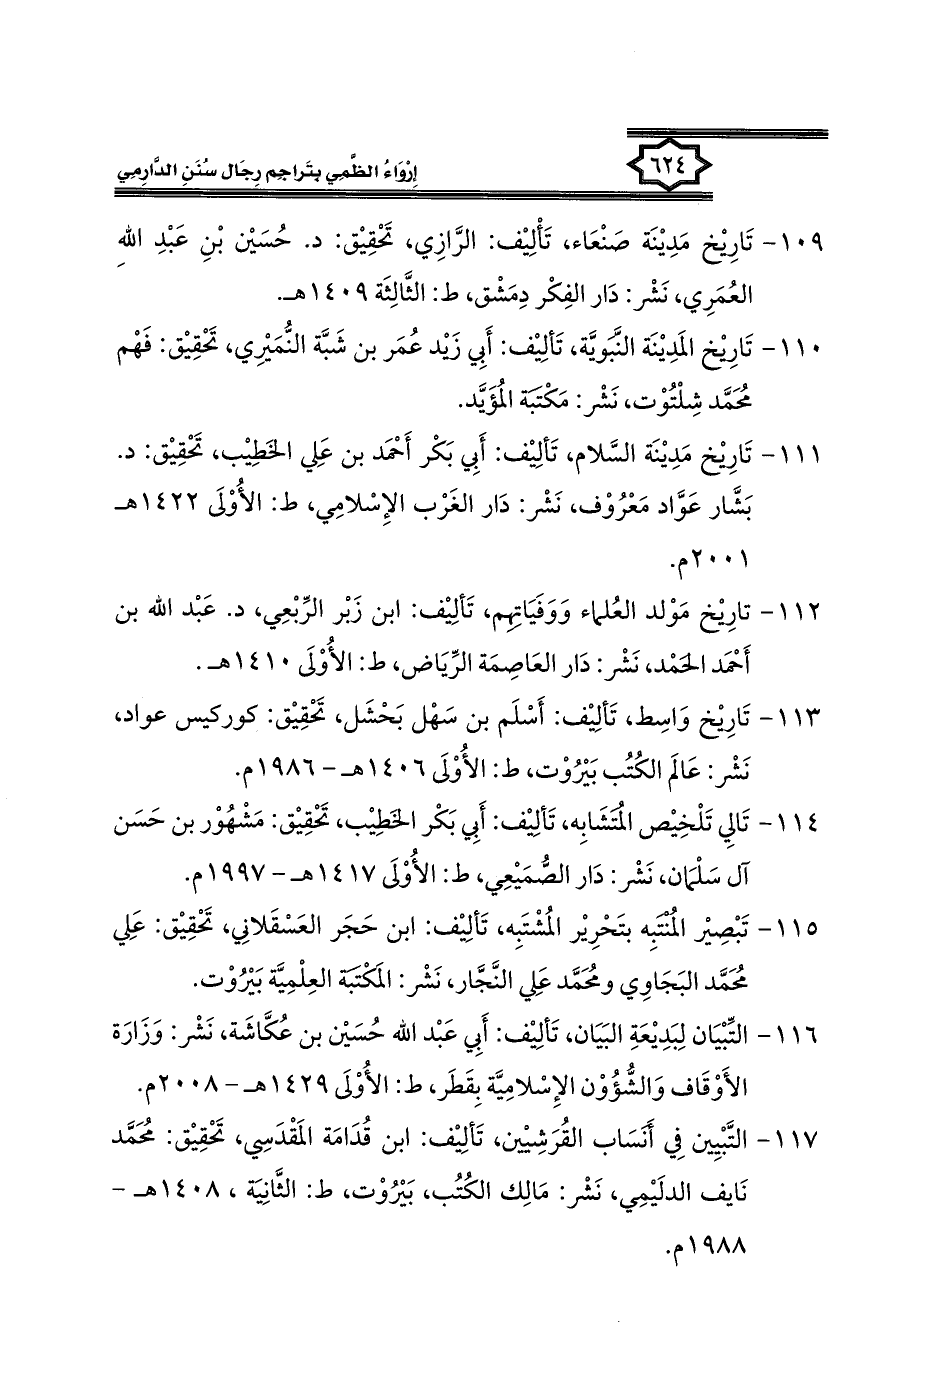 ٦٢٤
إِرْوَاءُ الظَّمِي بتَراجم رِجَال سُنَنِ الدَّارِمِي
١٠٩- تَارِيْخ مَدِيْنَة صَنْعَاء، تَأْلِيْف: الرَّازِي، تَحْقِيْق: د. حُسَيْن بْنِ عَبْدِ اللهِ
العُمَرِي، نَشْر: دَار الفِكْر دِمَشْق، ط: الثَّالِثَة ١٤٠٩هـ.
١١٠- تَارِيْخ المَدِيْنَة النَّبَوِيَّة، تَأْلِيْف: أَبِي زَيْد عُمَر بن شَبَّة النُّمَيْرِي، تَحْقِيْق: فَهْم
مُحَمَّد شِلْتُوْت، نَشْر: مَكْتَبَة المُؤَيَّد.
١١١- تَارِيْخ مَدِيْنَة السَّلام، تَأْلِيْف: أَبِي بَكْر أَحْمَد بن عَلِي الخَطِيْب، تَحْقِيْق: د.
بَشَّار عَوَّاد مَعْرُوْف، نَشْر: دَار الغَرْب الإِسْلامِي، ط: الأُوْلَى ١٤٢٢هـ
٢٠٠١م.
١١٢- تاريْخ مَوْلد العُلماء وَوَفَيَاتِهم، تَأْلِيْف: ابن زَبْر الرَّبْعِي، د. عَبْد الله بن
أَحْمَد الحَمْد، نَشْر: دَار العَاصِمَة الرِّيَاض، ط: الأُوْلَى ١٤١٠هـ.
١١٣- تَارِيْخ وَاسِط، تَأْلِيْف: أَسْلَم بن سَهْل بَحْشَل، تَحْقِيْق: كوركيس عواد،
نَشْر: عَالَم الكُتُب بَيْرُوْت، ط: الأُوْلَى ١٤٠٦هـ - ١٩٨٦م.
١١٤- تَالِي تَلْخِيْص المُتَشَابِه، تَأْلِيْف: أَبِي بَكْر الخَطِيْب، تَحْقِيْق: مَشْهُوْر بن حَسَن
آل سَلْمَان، نَشْر: دَار الصُّمَيْعِي، ط: الأُوْلَى ١٤١٧هـ - ١٩٩٧م.
١١٥- تَبْصِيْر المُنْتَبِه بتَحْرِيْر المُشْتَبِه، تَأْلِيْف: ابن حَجَر العَسْقَلاني، تَحْقِيْق: عَلِي
مُحَمَّد البَجَاوِي ومُحَمَّد عَلِي النَّجَّار، نَشْر: المَكْتَبَة العِلْمِيَّة بَيْرُوْت.
١١٦- التِّبْيَان لِبَدِيْعَةِ البَيَان، تَأْلِيْف: أَبِي عَبْد الله حُسَيْن بن عُكَّاشَة، نَشْر: وَزَارَة
الأَوْقَاف وَالشُّؤُوْن الإِسْلامِيَّة بِقَطَر، ط: الأُوْلَى ١٤٢٩هـ - ٢٠٠٨م.
١١٧- التَّبْيِين فِي أَنْسَاب القُرَشِيِّين، تَأْلِيْف: ابن قُدَامَة المَقْدَسِي، تَحْقِيْق: مُحَمَّد
نَايف الدلَيْمِي، نَشْر: مَالِك الكُتُب، بَيْرُوْت، ط: الثَّانِيَة ، ١٤٠٨هـ -
١٩٨٨م.